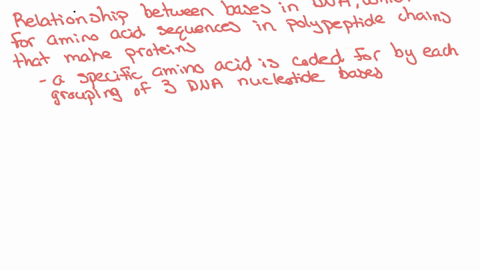 Relationship between bases in DNA,
for amino acid sequences in polypeptide chains
that make proteins
- a specific amino acid is coded for by each
grouping of 3 DNA nucleotide bases